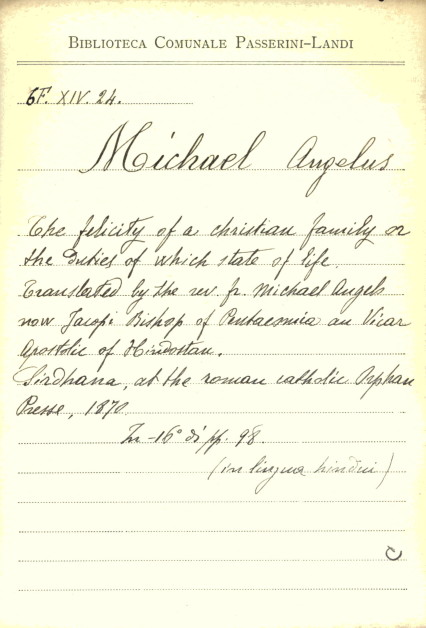 BIBLIOTECA COMUNALE PASSERINI-LANDI
6F. XIV. 24.
Michael Angelus
The felicity of a christian family or
the duties of which state of life.
Translated by the rev. fr. Michael Angels
now Jacopi Bishop of Pentacomia an Vicar
Apostolic of Hindostan.
Sirdhana, at the roman catholic Orphan
Presse, 1870
In -16° di pp. 98.
(in lingua hindui)
C